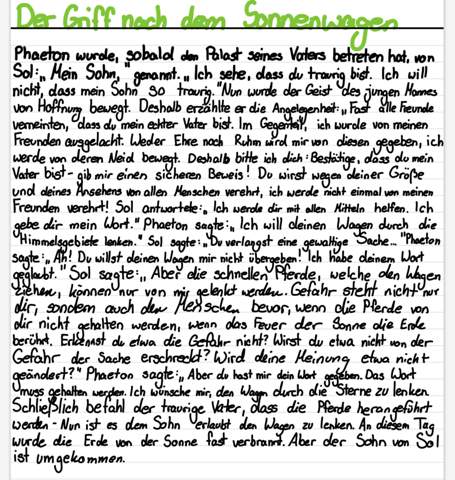 Der Griff nach dem Sonnenwagen
Phaeton wurde, sobald den Palast seines Vaters betreten hat, von
Sol: „Mein Sohn," genannt. „Ich sehe, dass du traurig bist. Ich will
nicht, dass mein Sohn so traurig." Nun wurde der Geist des jungen Mannes
von Hoffnung bewegt. Deshalb erzählte er die Angelegenheit: „Fast alle Freunde
verneinten, dass du mein echter Vater bist. Im Gegenteil, ich wurde von meinen
Freunden ausgelacht. Weder Ehre noch Ruhm wird mir von diesen gegeben, ich
werde von deren Neid bewegt. Deshalb bitte ich dich: Bestätige, dass du mein
Vater bist - gib mir einen sicheren Beweis! Du wirst wegen deiner Größe
und deines Ansehens von allen Menschen verehrt, ich werde nicht einmal von meinen
Freunden verehrt! Sol antwortete: „Ich werde dir mit allen Mitteln helfen. Ich
gebe dir mein Wort." Phaeton sagte: „Ich will deinen Wagen durch die
Himmelsgebiete lenken." Sol sagte: „Du verlangst eine gewaltige Sache..." Phaeton
sagte: „Ah! Du willst deinen Wagen mir nicht übergeben! Ich habe deinem Wort
geglaubt." Sol sagte: „Aber die schnellen Pferde, welche den Wagen
ziehen, können nur von mir gelenkt werden. Gefahr steht nicht nur
dir, sondern auch den Menschen bevor, wenn die Pferde von
dir nicht gehalten werden, wenn das Feuer der Sonne die Erde
berührt. Erkennst du etwa die Gefahr nicht? Wirst du etwa nicht von der
Gefahr der Sache erschreckt? Wird deine Meinung etwa nicht
geändert?" Phaeton sagte: „Aber du hast mir dein Wort gegeben. Das Wort
muss gehalten werden. Ich wünsche mir, den Wagen durch die Sterne zu lenken.
Schließlich befahl der traurige Vater, dass die Pferde herangeführt
werden - Nun ist es dem Sohn erlaubt den Wagen zu lenken. An diesem Tag
wurde die Erde von der Sonne fast verbrannt. Aber der Sohn von Sol
ist umgekommen.